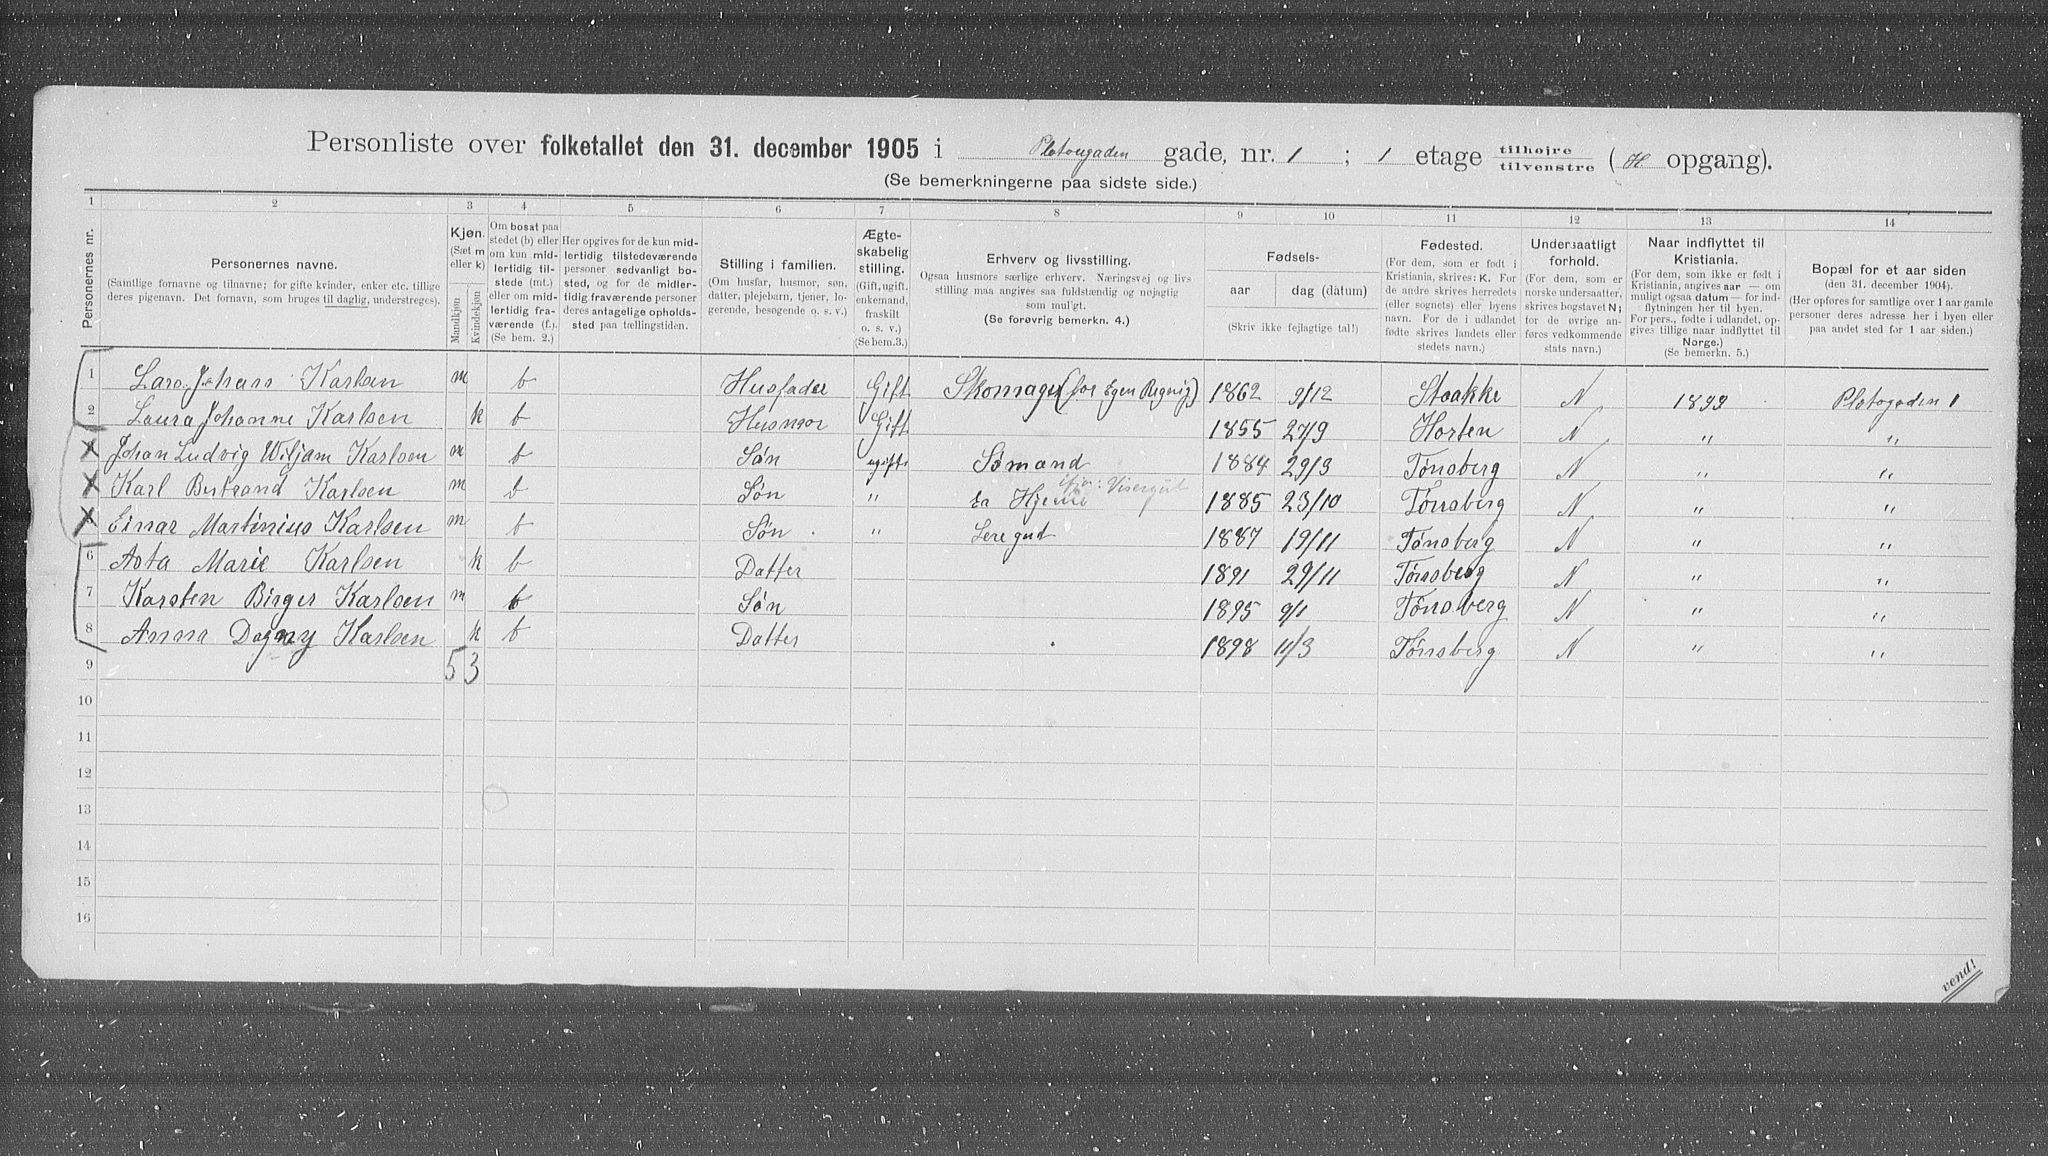 Personliste over folketallet den 31. december 1905 i Platougaden gade, nr. 1 ; 1 etage tilhøjre tilvenstre ( H opgang).
(Se bemerkningerne paa sidste side.)
1 2 3 4 5 6 7 8 9 10 11 12 13 14
Personernes nr.
Personernes navne.
(Samtlige fornavne og tilnavne; for gifte kvinder, enker etc. tillige
deres pigenavn. Det fornavn, som bruges til daglig, understreges).
Kjøn.
(Sæt m
eller k)
Mandkjøn
Kvindekjøn
Om bosat paa
stedet (b) eller
om kun mid-
lertidig til-
stede (mt.)
eller om mid-
lertidig fra-
værende (f.).
(Se bem. 2.)
Her opgives for de kun mid-
lertidig tilstedeværende
personer sedvanligt bo-
sted, og for de midler-
tidig fraværende personer
deres antagelige opholds-
sted paa tællingstiden.
Stilling i familien.
(Om husfar, husmor, søn,
datter, plejebarn, tjener, lo-
gerende, besøgende o. s. v.)
Ægte-
skabelig
stilling.
(Gift, ugift.
enkemand,
fraskilt
o. s. v.)
(Se bem.3.)
Erhverv og livsstilling.
Ogsaa husmors særlige erhverv. Næringsvej og livs
stilling maa angives saa fuldstændig og nøjagtig
som muligt.
(Se forøvrig bemerkn. 4.)
Fødsels-
aar dag (datum)
(Skriv ikke fejlagtige tal!)
Fødested.
(For dem, som er født i
Kristiania, skrives: K. For
de andre skrives herredets
(eller sognets) eller byens
navn. For de i udlandet
fødte skrives landets eller
stedets navn.)
Undersaatligt
forhold.
(For dem, som er
norske undersaatter,
skrives bogstavet N;
for de øvrige an-
føres vedkommende
stats navn.)
Naar indflyttet til
Kristiania.
(For dem, som ikke er født i
Kristiania, angives aar — om
muligt ogsaa datum — for ind-
flytningen her til byen.
For pers., fødte i udlandet, op-
gives tillige naar indflyttet til
Norge.)
(Se bemerkn. 5.)
Bopæl for et aar siden
(den 31. december 1904).
(Her opføres for samtlige over 1 aar gamle
personer deres adresse her i byen eller
paa andet sted for 1 aar siden.)
1 Lars Johans Karlsen m b Husfader Gift Skomager (for Egen Regnig) 1862 9/12 Stokke N 1899 Platogaden 1
2 Laura Johanne Karlsen k b Husmor Gift 1855 27/9 Horten N " "
X Johan Ludvig Wiljam Karlsen m b Søn ugift Sømand 1884 29/3 Tønsberg N " "
X Karl Bertrand Karlsen m b Søn " Er Hjeme Visergut 1885 23/10 Tønsberg N " "
X Einar Martinius Karlsen m b Søn " Leregut 1887 19/11 Tønsberg N " "
6 Asta Marie Karlsen k b Datter 1891 29/11 Tønsberg N " "
7 Karsten Birger Karlsen m b Søn 1895 9/1 Tønsberg N " "
8 Anna Dagny Karlsen k b Datter 1898 11/3 Tønsberg N " "
9 5 3
10
11
12
13
14
15
16
vend!